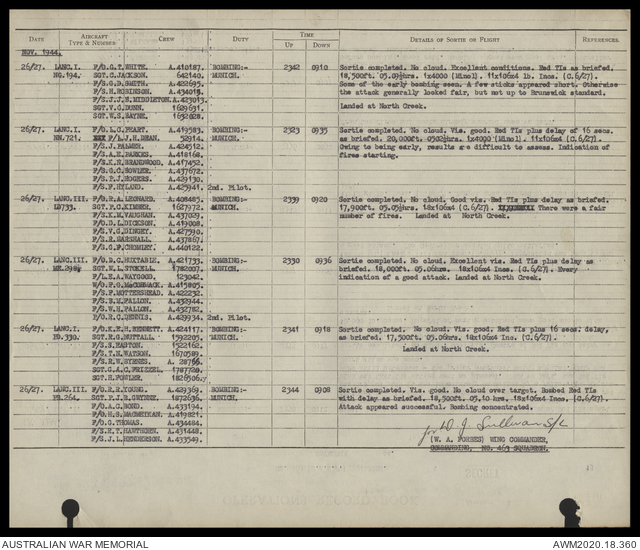 DATE AIRCRAFT TYPE & NUMBER CREW DUTY TIME UP DOWN DETAILS OF SORTIE OR FLIGHT REFERENCES
NOV. 1944.
26/27. LANC.I. F/O.G.T.WHITE. A.410187. BOMBING:- 2342 0910 Sortie completed. No cloud. Excellent conditions. Red TIs as briefed.
NG.194. SGT.C.JACKSON. 642140. MUNICH. 18,500ft. 1x4000 (Minol) 11x106x4 lb. Incs. (C.6/27).
F/S.G.D.SMITH. A.422695. Some of the early bombing seen. A few sticks appeared short. Otherwise
F/S.H.ROBINSON. the attack generally looked fair, but not up to Brunswick standard.
F/S.J.J.S.MIDDLETON.A.423013.
SGT.V.G.DUNN. 1629631. Landed at North Creek.
SGT.W.S.BAYNE. 1632028.
26/27. LANC.I. F/O.L.G.PEART. A.419583. BOMBING:- 2323 0935 Sortie completed. No cloud. Vis. good. Red TIs plus delay of 16 secs.
NN.721. P/L.J.H.DEAN. 52914. MUNICH. as briefed. 20,000ft. 1x4000 (Minol). 11x106x4 (C.6/27).
F/S.J.PALMER. A.424512. Owing to being early, results are difficult to assess. Indication of
F/S.A.E.PARKES. A.418168. fires starting.
F/S.K.N.BRANDWOOD. A.417452.
F/S.G.C.FOWLER. A.437672.
F/S.T.J.ROGERS. A.429130.
F/S.F.HYLAND. A.425941. 2nd. Pilot.
26/27. LANC.III. F/O.R.A.LEONARD. A.408485. BOMBING:- 2339 0920 Sortie completed. No cloud. Good vis. Red TIs plus delay as briefed.
SGT.F.G.KIMBER. 1627972. MUNICH. 17,900ft. 18x106x4 (C.6/27). There were a fair
F/S.K.M.VAUGHAN. A.437029. number of fires. Landed at North Creek.
F/O.D.L.DICKSON. A.419008.
F/S.V.G.DINGEY. A.427590.
F/S.R.MARSHALL. A.437867.
F/S.G.P.CHOMLEY. A.440122.
26/27. LANC.III. F/O.D.C.HUXTABLE. A.421733. BOMBING:- 2330 0936 Sortie completed. No cloud. Excellent vis. Red TIs plus delay as
SGT.W.L.STOKELL 1782007. MUNICH. briefed. 18,000ft. 05.06hrs. 18x106x4 Incs. (C.6/27). Every
F/L.E.A.WAYGOOD 123042. indication of a good attack. Landed at North Creek.
W/O.F.G.MacCORMACK A.415805.
F/S.F.MOTTERSHEAD. A.422232.
F/S.B.M.FALLON. A.432944.
F/S.W.H.FALLON. A.432782.
F/O.R.C.DENNIS. A.429934. 2nd. Pilot.
26/27. LANC.I. F/O.K.E.H.BENNETT. A.424117. BOMBING:- 2341 0918 Sortie completed. No cloud. Vis. good. Red TIs plus 16 secs. delay,
SGT.R.G.NUTTALL. 1592205. MUNICH. as briefed. 17,500ft. 05.06hrs. 18x106x4 Incs. (C.6/27).
F/S.S.EASTON. 1522162. Landed at North Creek.
F/S.T.H.WATSON. 1670589.
F/S.R.W.BYRNES. A. 28766.
SGT.G.A.C.FRIZZEL. 1787720.
SGT.H.FOWLER. 1826506.
26/27. LANC.III. F/O.R.R.YOUNG. A.429369. BOMBING:- 2344 0908 Sortie completed. Vis. good. No cloud over target. Bombed Red TIs
PB.264. SGT.P.J.B.GWYNNE. 1872636. MUNICH. with delay as briefed. 18,500ft. 05.10 hrs. 18x106x4 Incs. (C.6/27).
F/O.A.C.BOND. A.433194. Attack appeared successful. Bombing concentrated.
F/O.H.S.MACMEIKAN. A.419821.
F/O.G.THOMAS. A.434484.
F/S.R.T.HAWTHORN. A.431448.
F/S.J.L.HENDERSON. A.433549.
(W. A. FORBES) WING COMMANDER,
COMMANDING, NO. 463 SQUADRON.
AUSTRALIAN WAR MEMORIAL AWM2020.18.360